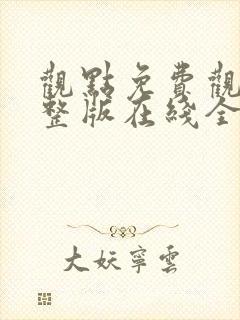 觀點免費觀
整版在綫全
大妖寧雲